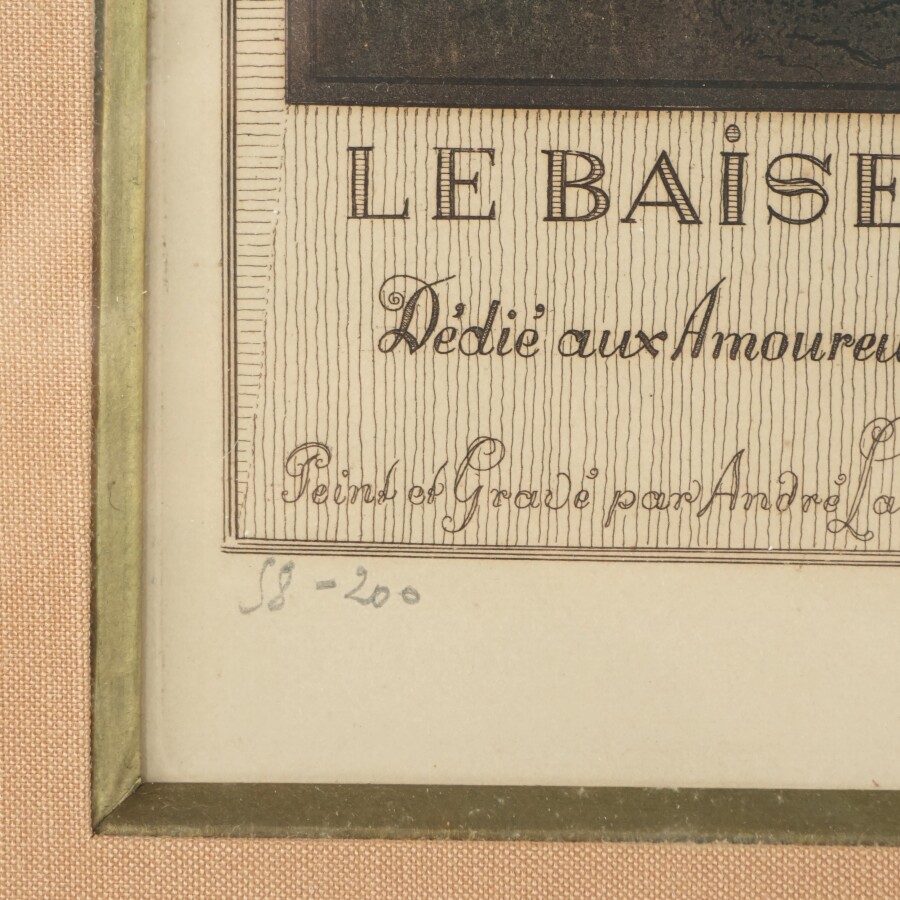 LE BAISE
Dédié aux Amoureu
Peint et Gravé par André La
58 - 200